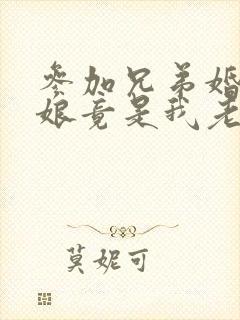 参加兄弟婚
娘竟是我老
莫妮可